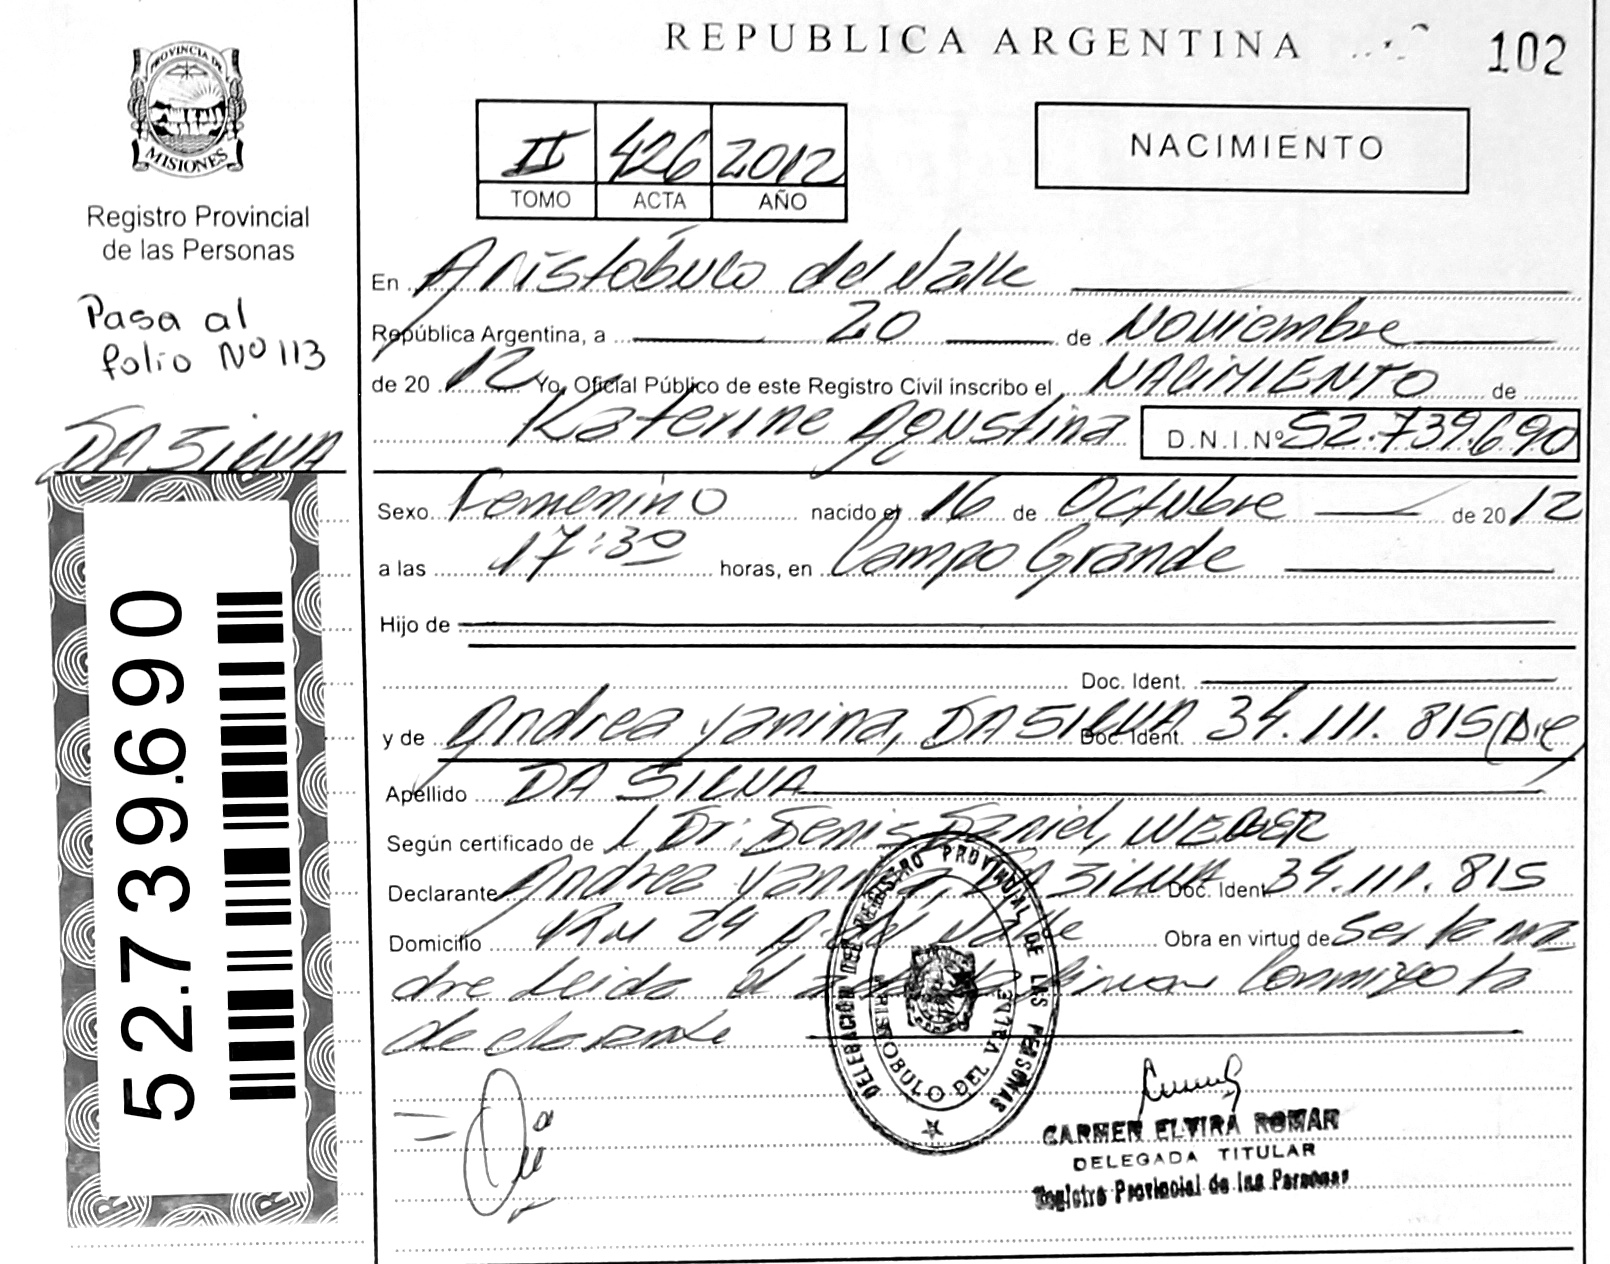 PROVINCIA DE
MISIONES
Registro Provincial
de las Personas
Pasa al
folio Nº 113
DA SILVA
52.739.690
REPUBLICA ARGENTINA
102
II 426 2012
TOMO ACTA AÑO
NACIMIENTO
En Aristóbulo del Valle
República Argentina, a 20 de Noviembre
de 2012 Yo, Oficial Público de este Registro Civil inscribo el NACIMIENTO de
Katerine Agustina D.N.I.Nº 52.739.690
Sexo Femenino nacido el 16 de Octubre de 2012
a las 17:30 horas, en Campo Grande
Hijo de
Doc. Ident.
y de Andrea Yanina, DA SILVA Doc. Ident. 34.111.815
Apellido DA SILVA
Según certificado de Dr: Denis Daniel, WEBER
Declarante Andrea Yanina, DA SILVA Doc. Ident 34.111.815
Domicilio del Valle Obra en virtud de Ser la ma
dre Leida el acta la firman Conmigo la
declarante
DELEGACION DEL REGISTRO PROVINCIAL DE LAS PERSONAS
ARISTOBULO DEL VALLE
CARMEN ELVIRA ROMAN
DELEGADA TITULAR
Registro Provincial de las Personas